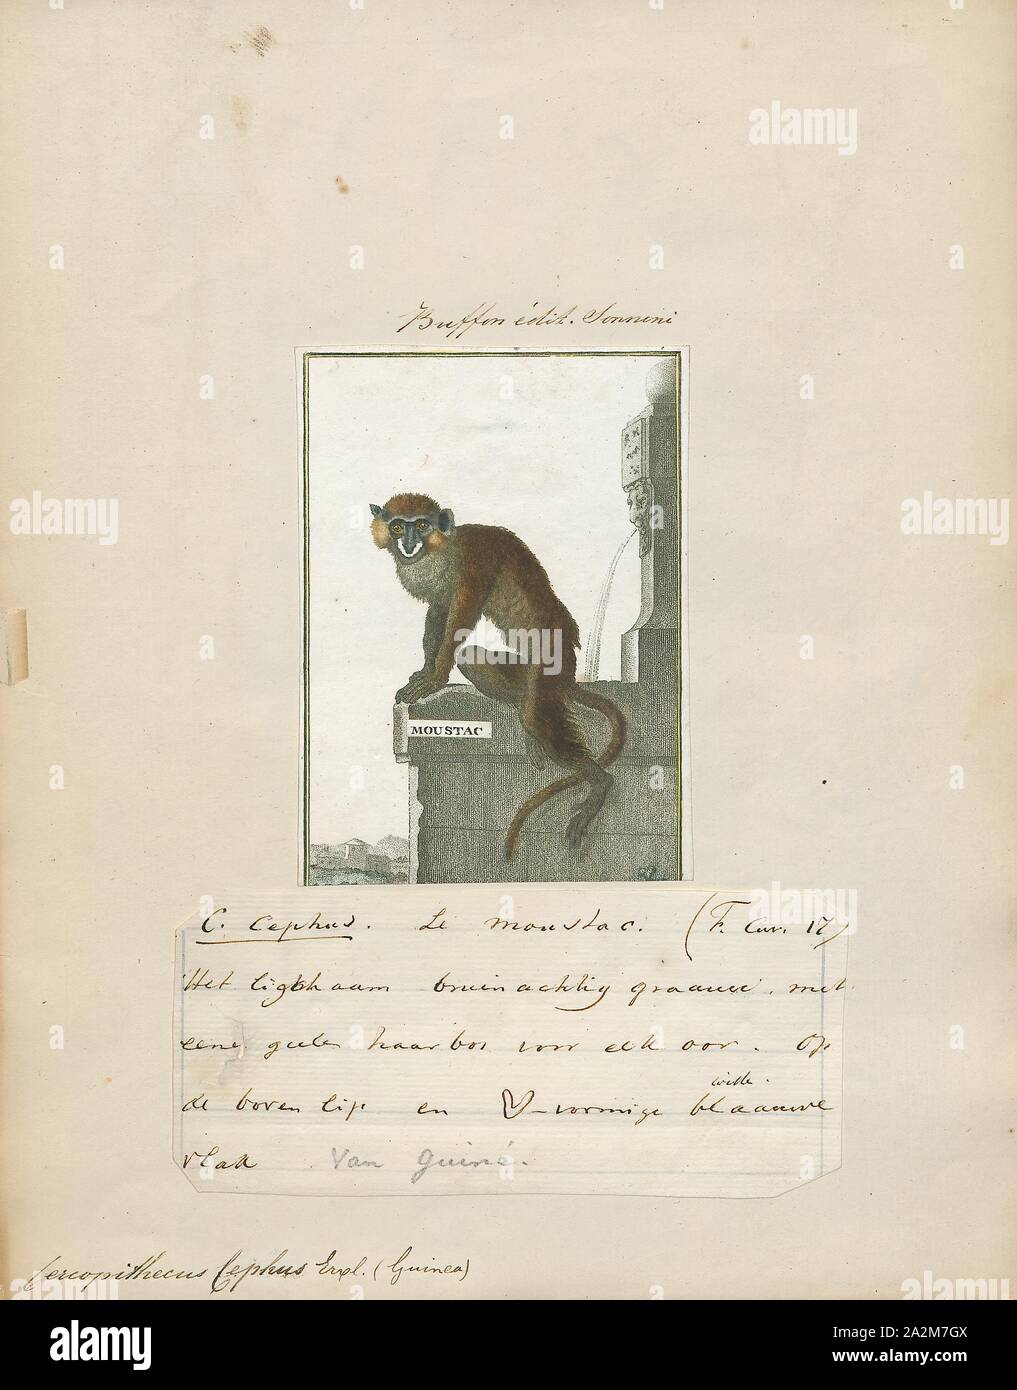 Buffon édit. Sonnini
MOUSTAC
C. Cephus. Le Moustac. (F. Cuv. 17)
Het ligkhaam bruinachtig graauw. met
eene geele haarbos voor elk oor. Op
witte.
de boven lip en -vormige blaauwe
vlak Van Guiné.
Cercopithecus Cephus Erxl. (Guinea)
alamy
Image ID: 2A2M7GX
www.alamy.com